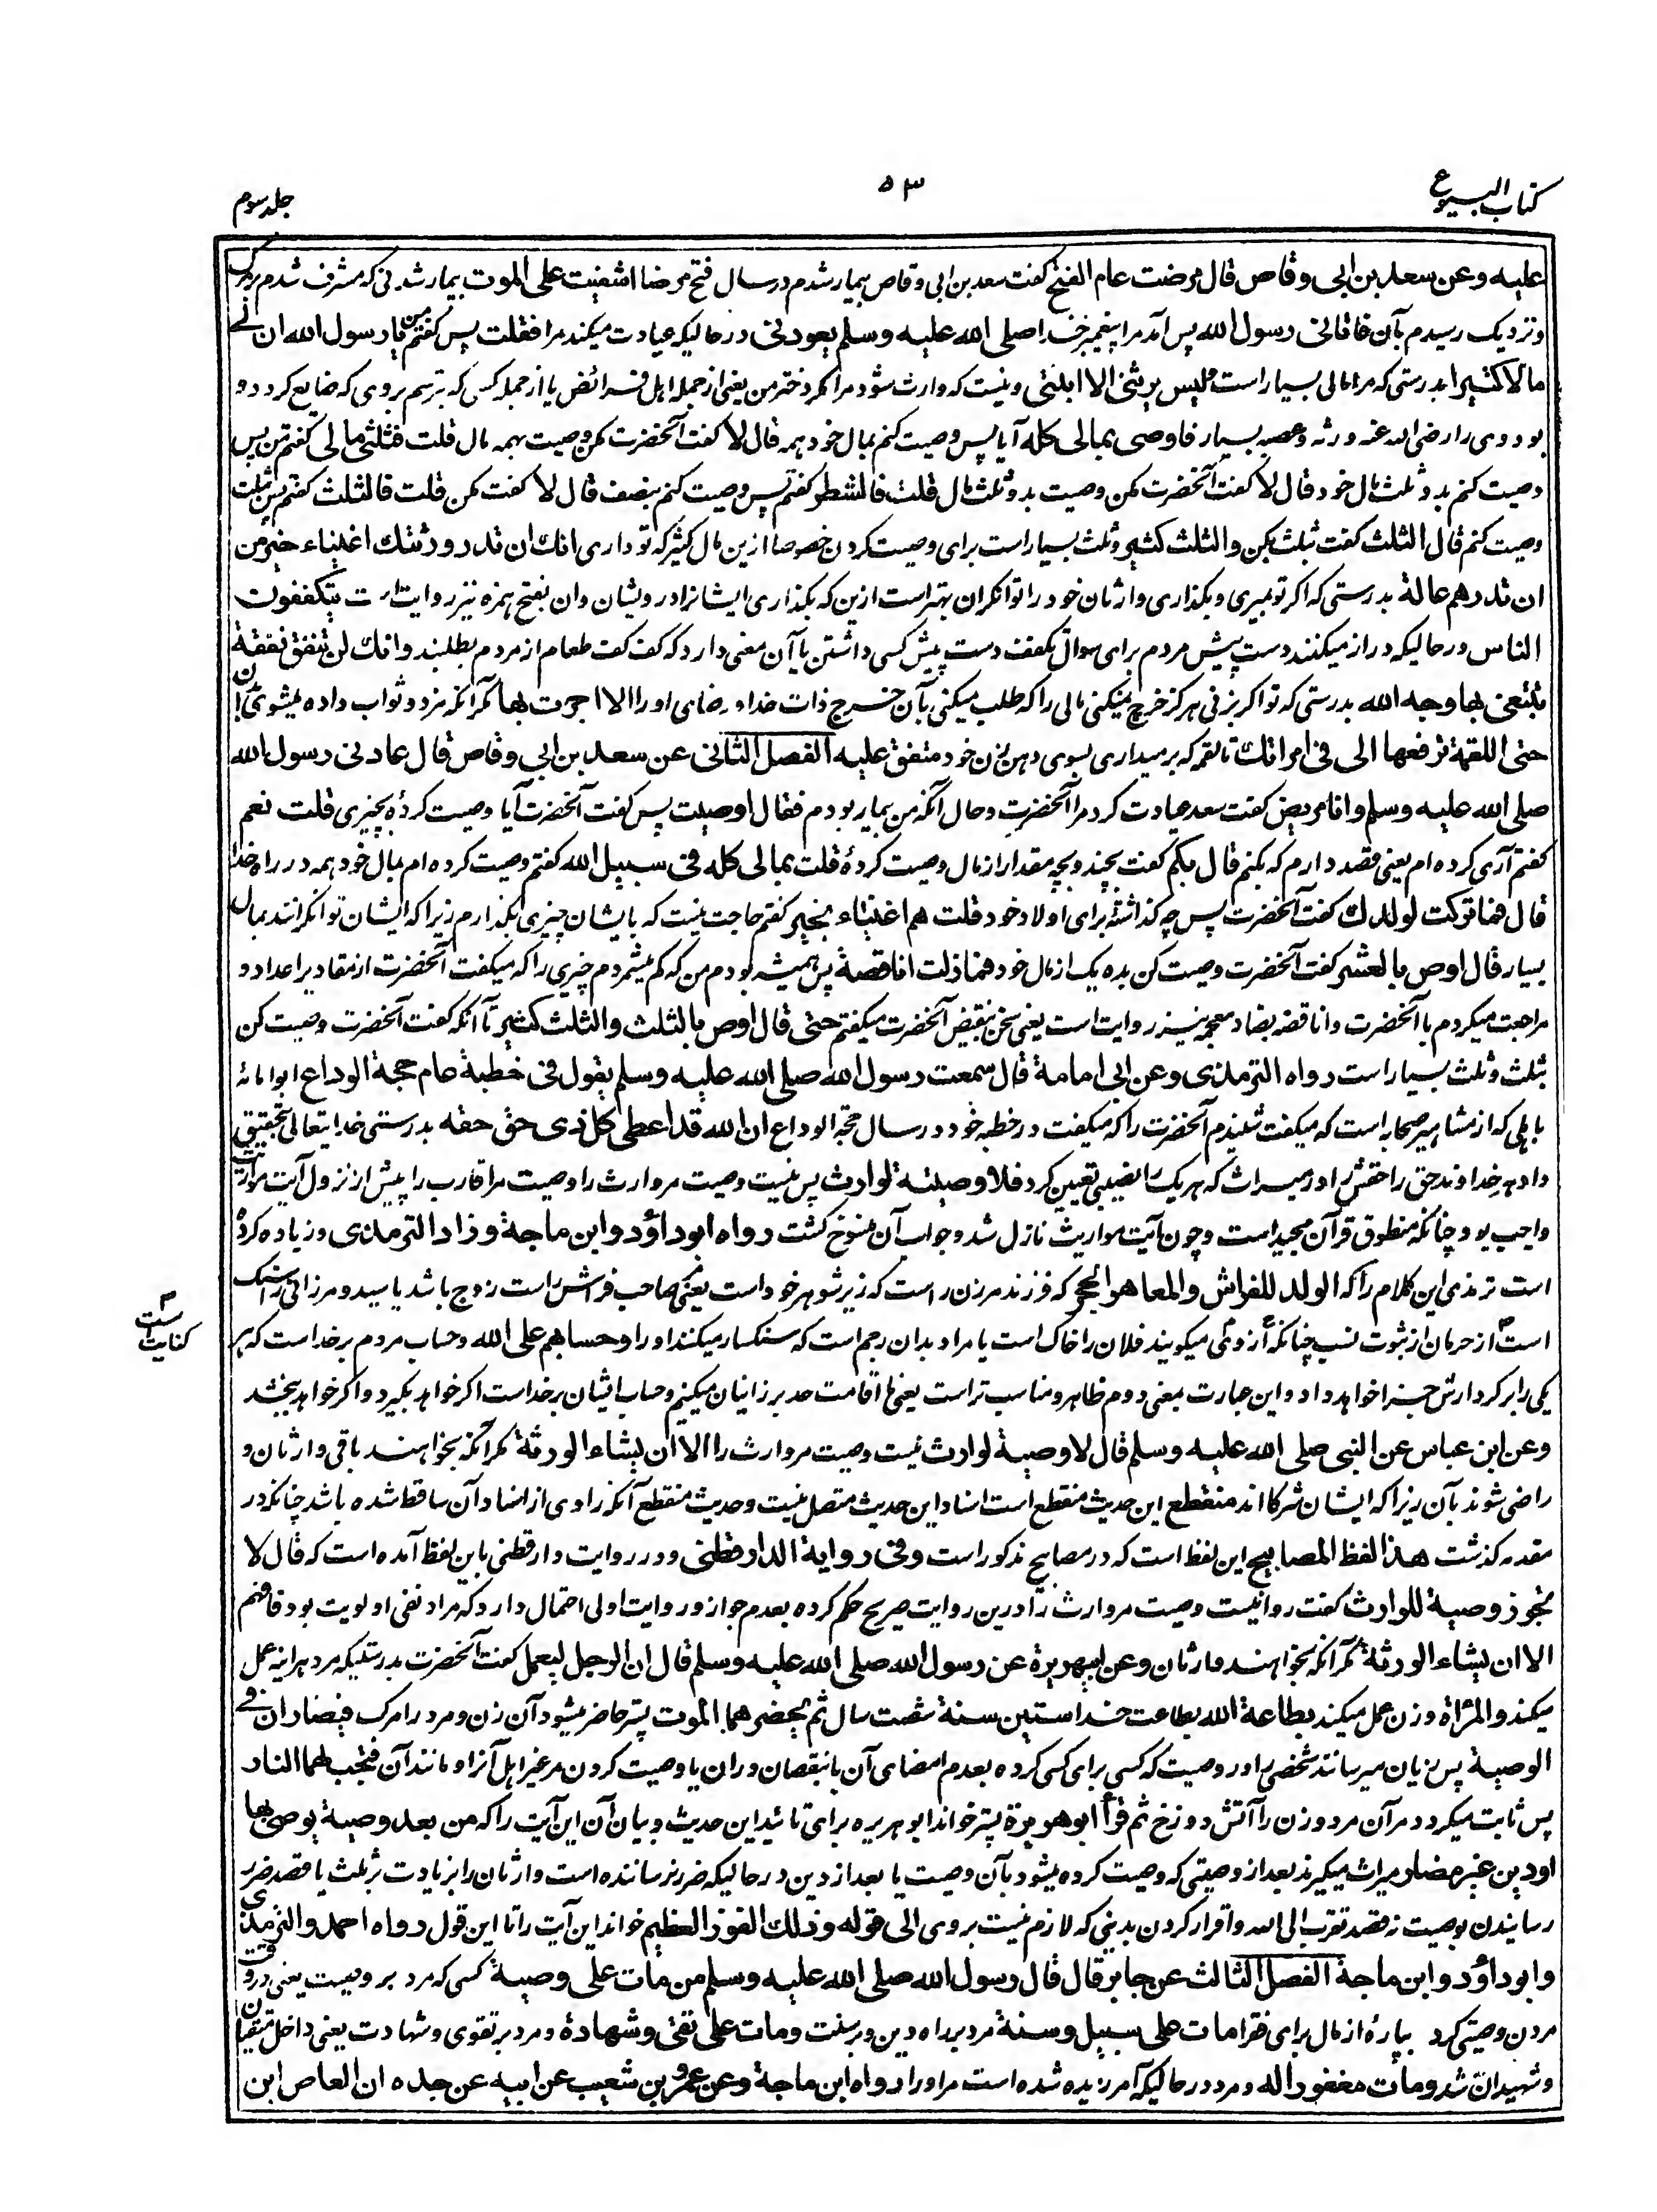 کتاب البیوع
۵۳
جلد سوم
علیه وعن سعد بن ابی وقاص قال مرضت عام الفتح گفت سعد بن ابی وقاص بیمار شدم در سال فتح مرضا اشفیت علی الموت بیمار شدنی که مشرف شدم بر مرگ
ونزدیک رسیدم بآن فاتانی رسول الله پس آمد مرا پیغمبر خدا صلی الله علیه وسلم یعودنی در حالیکه عیادت میکند مرا فقلت پس گفتم من یا رسول الله ان لے
مالا کثیرا بدرستی که مرا مالی بسیار است ولیس یرثنی الا ابنتی ونیست که وارث شود مرا مگر دختر من یعنی از جمله اهل فرائض یا از جمله کسی که بترسم بروی که ضایع گردد و
بود وی را رضی الله عنه ورثه وعصبه بسیار فاوصی بمالی کله آیا پس وصیت کنم بمال خود همه قال لا گفت آنحضرت مکن وصیت بهمه مال قلت فثلثی مالی گفتم من پس
وصیت کنم بدو ثلث مال خود قال لا گفت آنحضرت مکن وصیت بدو ثلث مال قلت فالشطر گفتم پس وصیت کنم بنصف قال لا گفت مکن قلت فالثلث گفتم پس بثلث
وصیت کنم قال الثلث گفت ثلث بکن والثلث کثیر وثلث بسیار است برای وصیت کردن خصوصا ازین مال کثیر که تو داری انک ان تذر ورثتک اغنیاء خیر من
ان تذرهم عالة بدرستی که اگر تو بمیری وبگذاری وارثان خود را توانگران بهتر است ازین که بگذاری ایشانرا درویشان وان بفتح همزه نیز روایت است یتکففون
الناس در حالیکه دراز میکنند دست پیش مردم برای سوال تکفف دست پیش کسی داشتن یا آن معنی دارد که کف کف طعام از مردم بطلبند وانک لن تنفق نفقة
تبتغی بها وجه الله بدرستی که تو اگر بزئی هرگز خرچ نمیکنی مالی را که طلب میکنی بآن خرچ ذات خدا ورضای او را الا اجرت بها مگر آنکه مزد وثواب داده میشوی بدان
حتی اللقمة ترفعها الی فی امراتک تا لقمه که برمیداری بسوی دهن زن خود متفق علیه الفصل الثانی عن سعد بن ابی وقاص قال عادنی رسول الله
صلی الله علیه وسلم وانا مریض گفت سعد عیادت کرد مرا آنحضرت وحال آنکه من بیمار بودم فقال اوصیت پس گفت آنحضرت آیا وصیت کردۀ بچیزی قلت نعم
گفتم آری کرده ام یعنی قصد دارم که بکنم قال بکم گفت بچند وبچه مقدار از مال وصیت کردۀ قلت بمالی کله فی سبیل الله گفتم وصیت کرده ام بمال خود همه در راه خدا
قال فما ترکت لولدک گفت آنحضرت پس چه گذاشتۀ برای اولاد خود قلت هم اغنیاء بخیر گفتم حاجت نیست که بایشان چیزی بگذارم زیرا که ایشان توانگرانند بمال
بسیار قال اوص بالعشر گفت آنحضرت وصیت کن بده یک از مال خود فما زلت اناقصة پس همیشه بودم من که کم میشمردم چیزی را که میگفت آنحضرت از مقادیر اعداد و
مراجعت میکردم با آنحضرت واناقضه بضاد معجمه نیز روایت است یعنی سخن بنقیض آنحضرت میگفتم حتی قال اوص بالثلث والثلث کثیر تا آنکه گفت آنحضرت وصیت کن
بثلث وثلث بسیار است رواه الترمذی وعن ابی امامة قال سمعت رسول الله صلی الله علیه وسلم یقول فی خطبة عام حجة الوداع ابو امامه
باهلی که از مشاهیر صحابه است که میگفت شنیدم آنحضرت را که میگفت در خطبه خود در سال حجة الوداع ان الله قد اعطی کل ذی حق حقه بدرستی خدایتعالی بتحقیق
داده خداوند حق را حقش را در میراث که هر یک را نصیبی تعیین کرد فلا وصیة لوارث پس نیست وصیت مر وارث را وصیت مر اقارب را پیش از نزول آیت مواریث
واجب بود چنانکه منطوق قرآن مجید است وچون آیت مواریث نازل شد وجواب آن منسوخ گشت رواه ابو داؤد وابن ماجة وزاد الترمذی وزیاده کرده
است ترمذی این کلام را که الولد للفراش وللعاهر الحجر که فرزند مر زن راست که زیر شوهر خود است یعنی صاحب فراش راست زوج باشد یا سید ومر زانی را سنگ
است از حرمان از ثبوت نسب چنانکه از ومی میگویند فلان را خاک است یا مراد بدان رجم است که سنگسار میکنند او را وحسابهم علی الله وحساب مردم بر خداست که هر
یکی را بر کردارش جزا خواهد داد واین عبارت بمعنی دوم ظاهر ومناسب تر است یعنی ما اقامت حد بر زانیان میکنیم وحساب ایشان بر خداست اگر خواهد بگیرد واگر خواهد ببخشد
وعن ابن عباس عن النبی صلی الله علیه وسلم قال لا وصیة لوارث نیست وصیت مر وارث را الا ان یشاء الورثة مگر آنکه بخواهند باقی وارثان و
راضی شوند بآن زیرا که ایشان شرکا اند منقطع این حدیث منقطع است اسناد این حدیث متصل نیست وحدیث منقطع آنکه راوی از اسناد آن ساقط شده باشد چنانکه در
مقدمه گذشت هذا لفظ المصابیح این لفظ است که در مصابیح مذکور است وفی روایة الدارقطنی ودر روایت دارقطنی باین لفظ آمده است که قال لا
تجوز وصیة للوارث گفت روا نیست وصیت مر وارث را درین روایت صریح حکم کرده بعدم جواز ودر روایت اولی احتمال دارد که مراد نفی اولویت بود فافهم
الا ان یشاء الورثة مگر آنکه بخواهند وارثان وعن ابی هریرة عن رسول الله صلی الله علیه وسلم قال ان الرجل لیعمل گفت آنحضرت بدرستیکه مرد هر آینه عمل
میکند والمرأة وزن عمل میکند بطاعة الله بطاعت خدا ستین سنة شصت سال ثم یحضرهما الموت پستر حاضر میشود آن زن ومرد را مرگ فیضاران فے
الوصیة پس زیان میرسانند شخصی را در وصیت که کسی برای کسی کرده بعدم امضای آن یا نقصان در ان یا وصیت کردن مر غیر اهل آنرا ومانند آن فتجب لهما النار
پس ثابت میگردد مر آن مرد وزن را آتش دوزخ ثم قرأ ابو هریرة پستر خواند ابو هریره برای تائید این حدیث وبیان آن این آیت را که من بعد وصیة یوصی بها
او دین غیر مضار میراث میگیرند بعد از وصیتی که وصیت کرده میشود بآن وصیت یا بعد از دین در حالیکه ضرر نرساننده است وارثان را بزیادت بر ثلث یا قصد ضرر
رسانیدن بوصیت نه قصد تقرب الی الله واقرار کردن بدینی که لازم نیست بروی الی قوله وذلک الفوز العظیم خواند این آیت را تا این قول رواه احمد والترمذی
وابو داؤد وابن ماجة الفصل الثالث عن جابر قال قال رسول الله صلی الله علیه وسلم من مات علی وصیة کسی که مرد بر وصیت یعنی در وقت
مردن وصیتی کرد بپارۀ از مال برای فقرا مات علی سبیل وسنة مرد بر راه دین وبر سنت ومات علی تقی وشهادة ومرد بر تقوی وشهادت یعنی داخل متقیان
وشهیدان شد ومات مغفورا له ومرد در حالیکه آمرزیده شده است مر او را رواه ابن ماجة وعن عمرو بن شعیب عن ابیه عن جده ان العاص ابن
کنایت ست